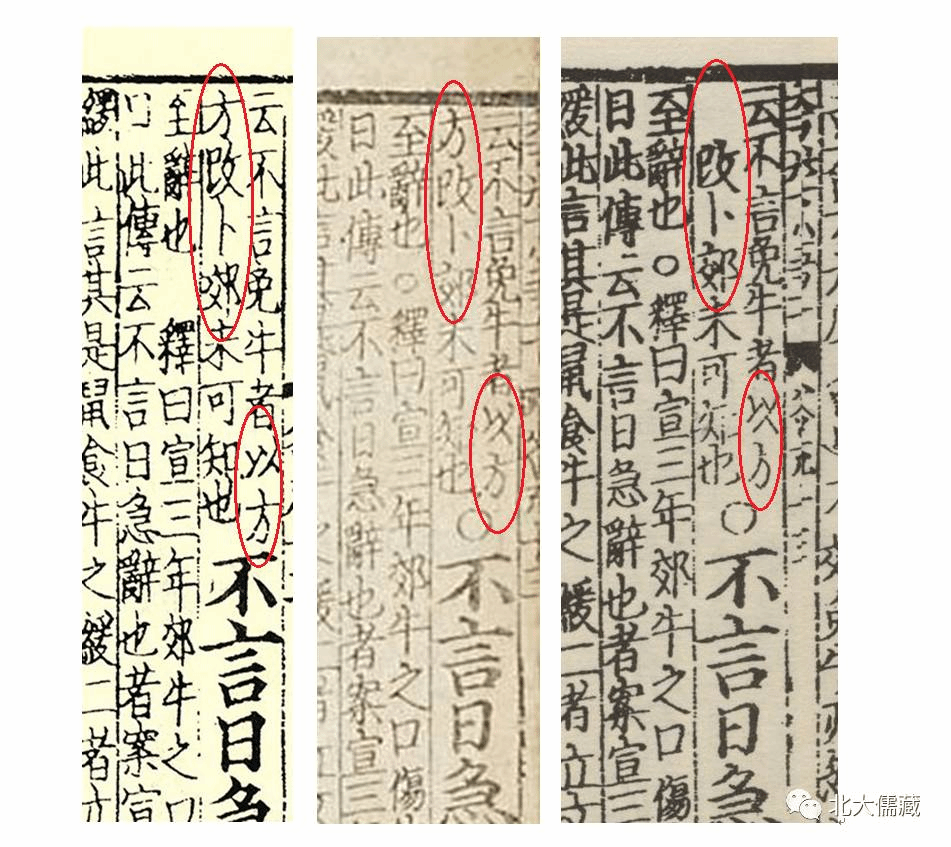 云不言免牛者以方
方改卜郊未可知也
不言日急
至辭也 釋曰宣三年郊牛之口
此傳云不言日急辭也者案宣
緩此言其是鼠食牛之緩二者立
云不言免牛者以方
方改卜郊未可知也○
不言日急
至辭也○釋曰宣三年郊牛之口傷
日此傳云不言日急辭也者案宣三
云不言免牛者以方
改卜郊未可知也○
不言日急
至辭也○釋曰宣三年郊牛之口傷
日此傳云不言日急辭也者案宣三
緩此言其是鼠食牛之緩二者立方
北大儒藏